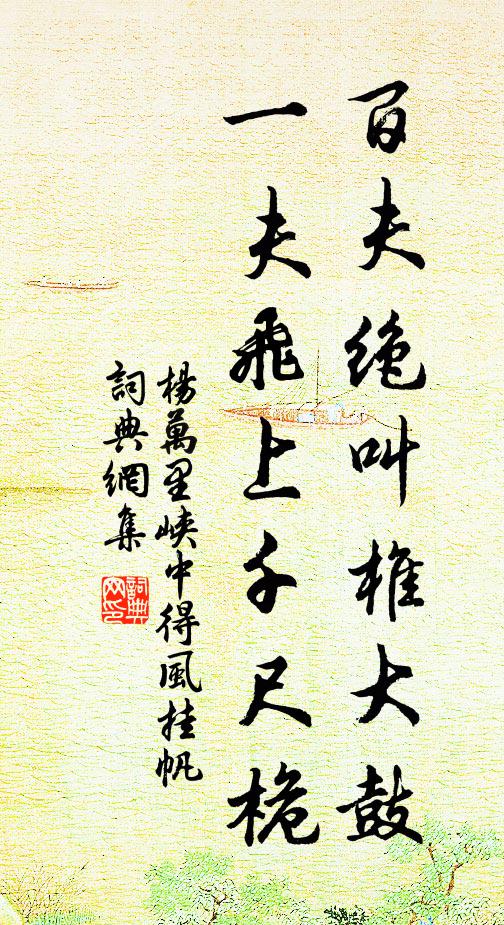 百夫绝叫椎大鼓
一夫飛上千尺桅
楊萬里峽中得風挂帆
詞典網集
詞典网印